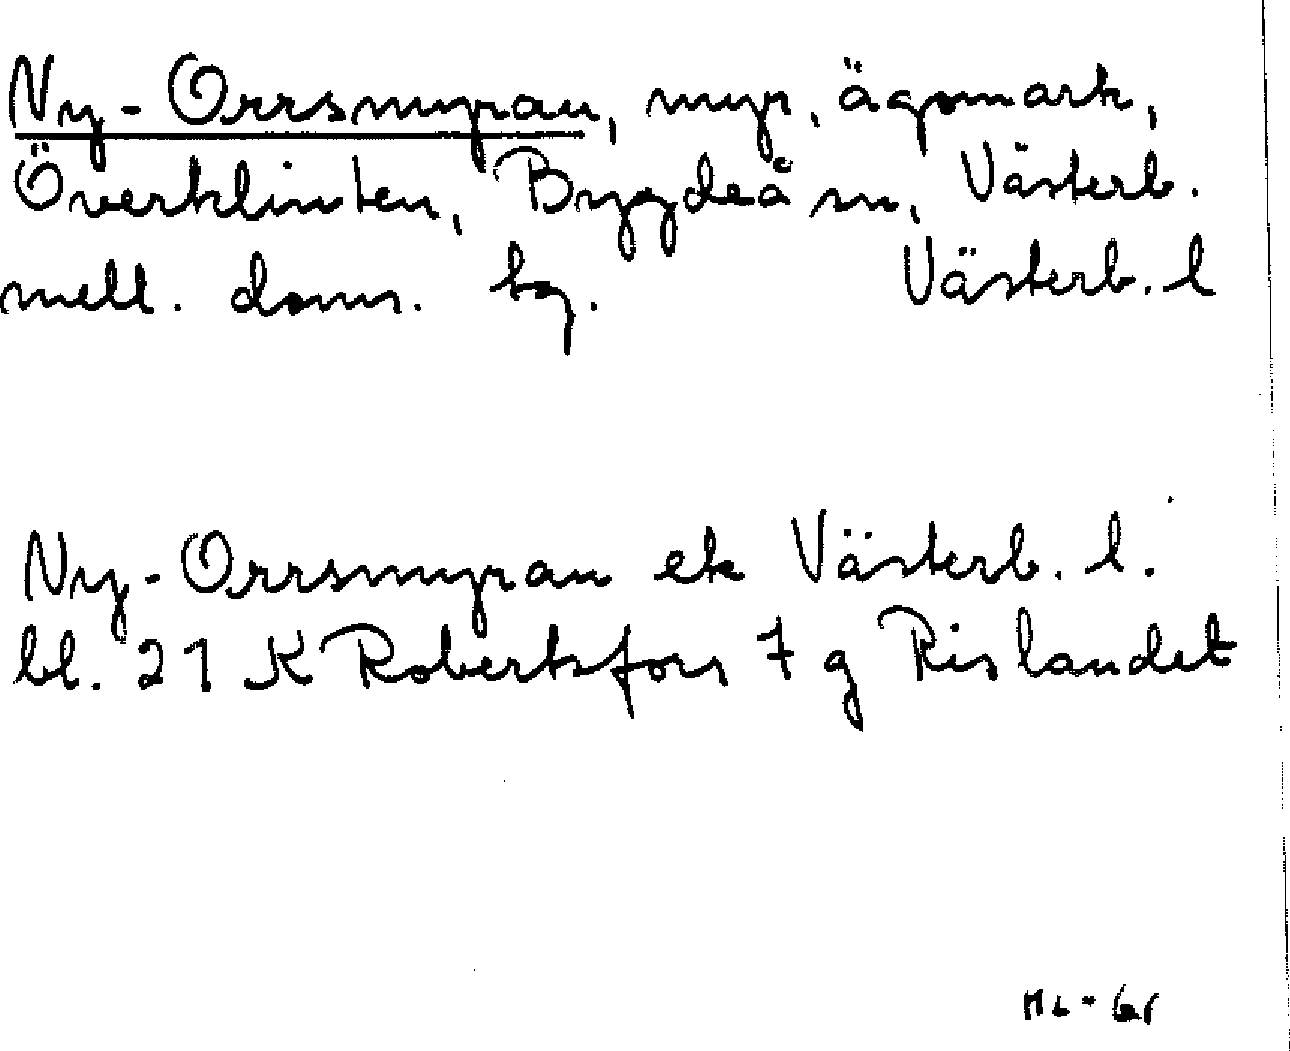 Ny-Orrsmyran, myr, ägomark,
Överklinten, Bygdeå sn, Västerb.
mell. doms. bg. Västerb. l
Ny-Orrsmyran ek Västerb. l.
bl. 21 K Robertsfors 7 g Rislandet